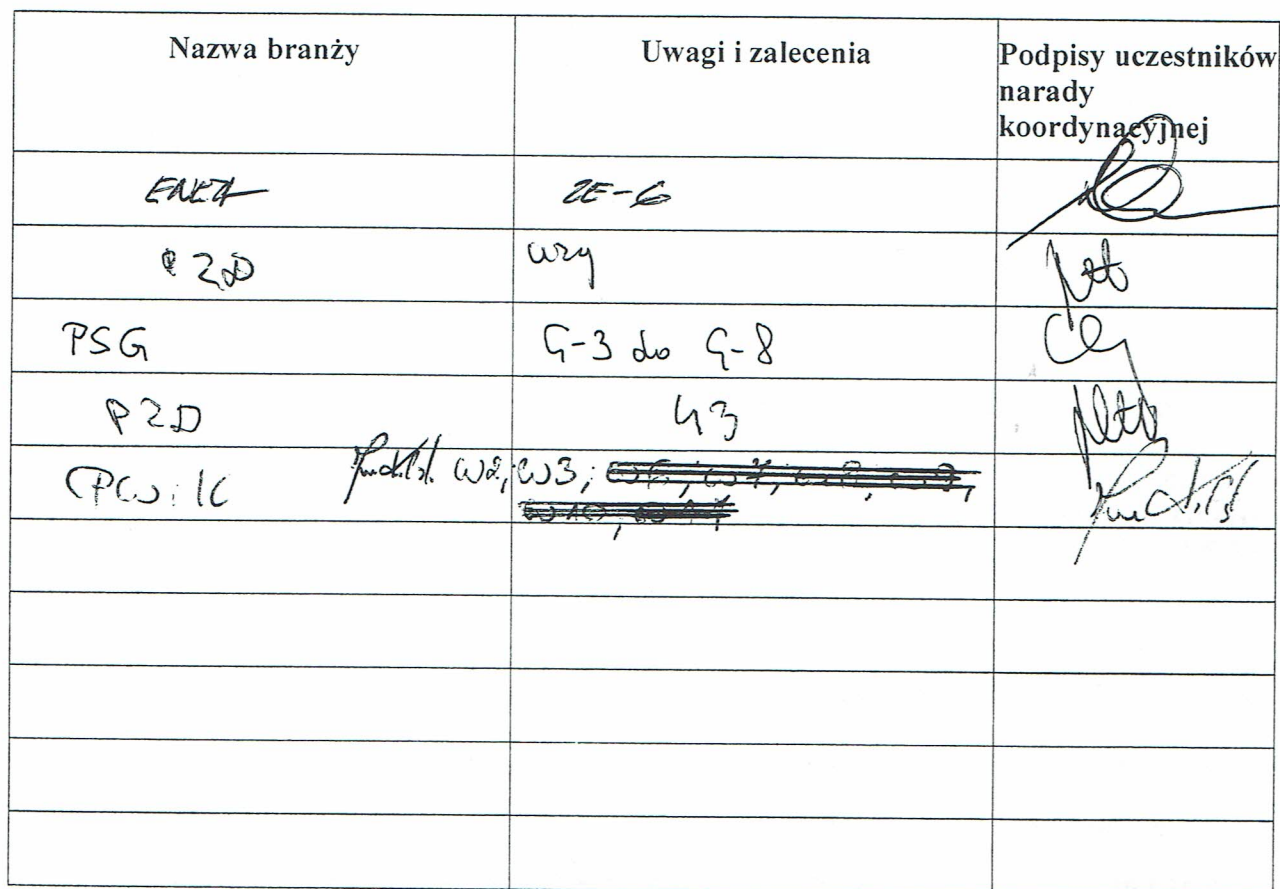 Nazwa branży
Uwagi i zalecenia
Podpisy uczestników
narady
koordynacyjnej
ENEA
ZE-6
PZD
wzy
PSG
G-3 do G-8
PZD
43
PWiK
W2; W3;